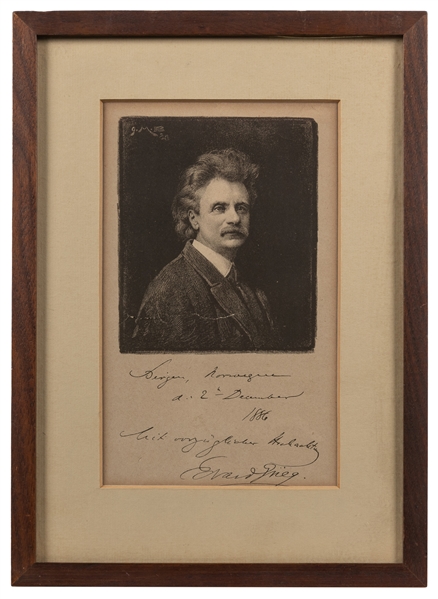 Bergen, Norwegen
d. 2t December
1886
Mit vorzüglicher Hochacht
Edvard Grieg.